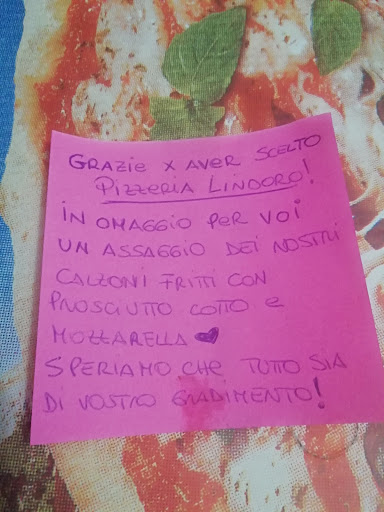 GRAZIE X AVER SCELTO
PIZZERIA LINDORO!
IN OMAGGIO PER VOI
UN ASSAGGIO DEI NOSTRI
CALZONI FRITTI CON
PROSCIUTTO COTTO E
MOZZARELLA ♥
SPERIAMO CHE TUTTO SIA
DI VOSTRO GRADIMENTO!